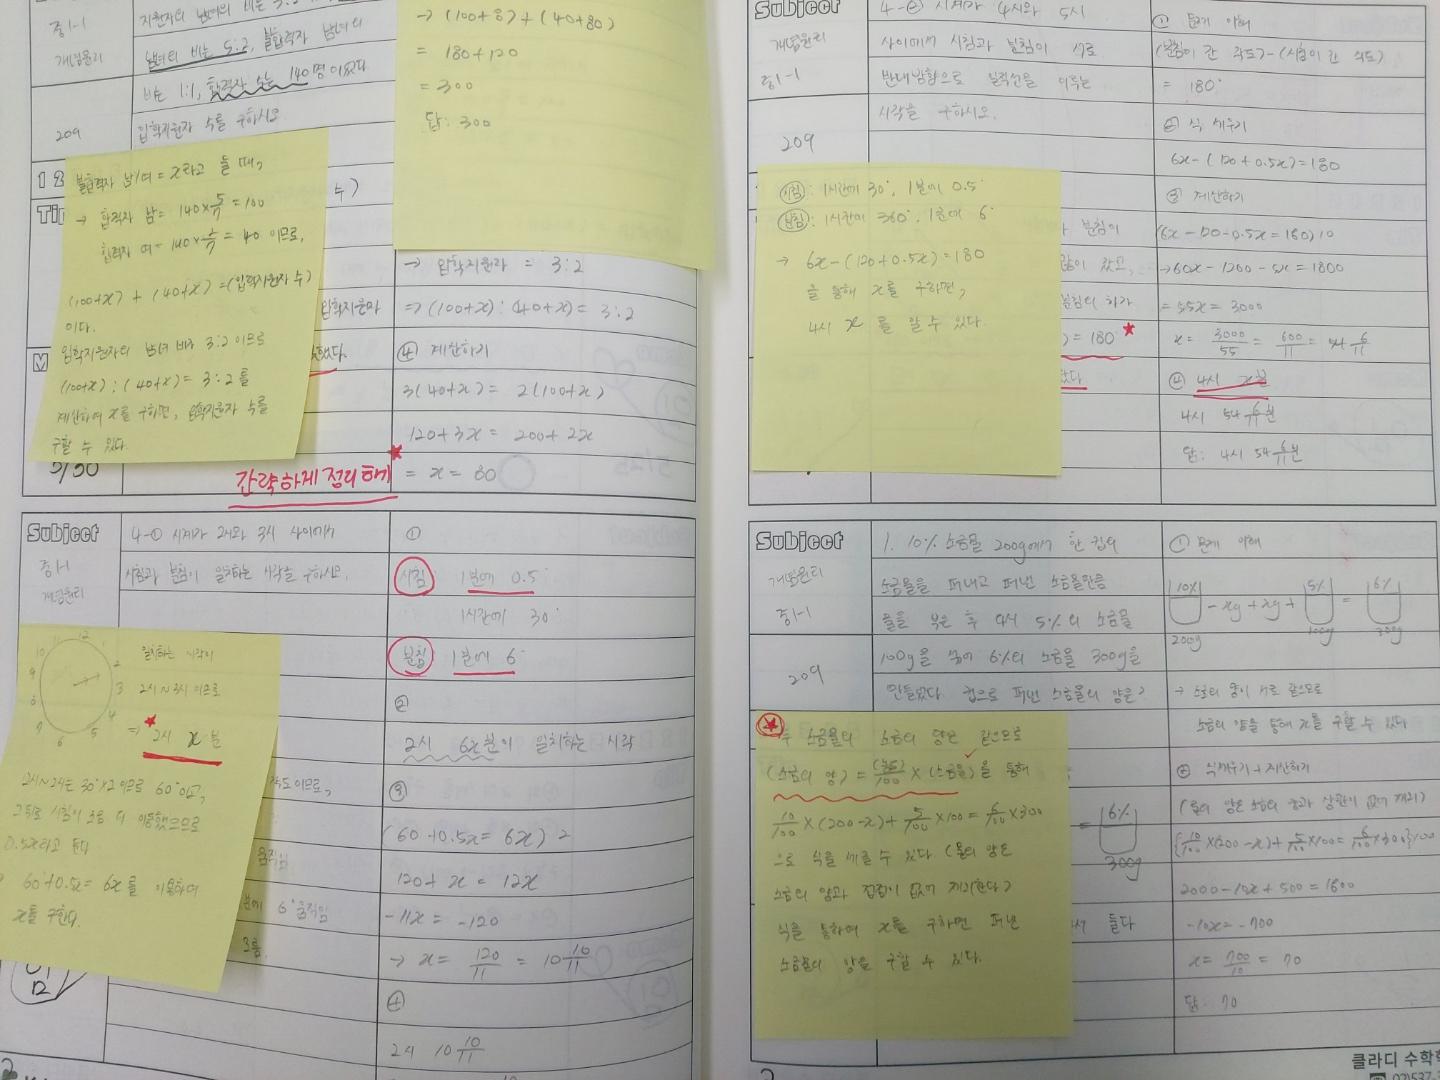 중1-1
개념원리
209
남녀의 비는 5:2, 불합격자 남녀의
비는 1:1, 합격자 수는 140명 이었다
입학지원자 수를 구하시오
불합격자 남/여 = x라고 둘 때,
→ 합격자 남 = 140×5/7 = 100
(100+x) + (40+x) = (입학지원자 수)
이다.
입학지원자의 남녀 비가 3:2 이므로
(100+x) : (40+x) = 3:2 를
계산하여 x를 구하면, 입학지원자 수를
구할 수 있다.
= 180+120
= 300
답: 300
→ 입학지원자 = 3:2
⇒ (100+x) : (40+x) = 3:2
④ 계산하기
3(40+x) = 2(100+x)
120+3x = 200+2x
= x = 80
간략하게 정리해
Subject
중1-1
개념원리
4-① 시계가 2시와 3시 사이에서
시침과 분침이 일치하는 시각을 구하시오.
①
시침: 1분에 0.5°
1시간에 30°
분침 1분에 6°
②
2시 6x분이 일치하는 시각
③
(60+0.5x = 6x) 2
120+x = 12x
-11x = -120
→ x = 120/11 = 10 10/11
④
2시 10 10/11
일치하는 시각이
2시~3시 이므로
⇒ 2시 x 분
12시~2시는 30°×2 이므로 60°이고,
그 뒤로 시침이 조금 더 이동했으므로
0.5x라고 둔다
60+0.5x = 6x를 이용하여
x를 구한다.
Subject
개념원리
중1-1
209
4-② 시계가 4시와 5시
사이에서 시침과 분침이 서로
반대방향으로 일직선을 이루는
시각을 구하시오.
① 문제 이해
(분침이 간 각도)-(시침이 간 각도)
= 180°
② 식 세우기
6x-(120+0.5x)=180
③ 계산하기
(6x-120-0.5x=180)10
→60x-1200-5x=1800
= 55x = 3000
x = 3000/55 = 600/11 = 54 6/11
④ 4시 x분
4시 54 6/11분
답: 4시 54 6/11분
시침: 1시간에 30°, 1분에 0.5°
분침: 1시간에 360°, 1분에 6°
→ 6x-(120+0.5x)=180
을 통해 x를 구하면,
4시 x 를 알 수 있다.
) = 180°
Subject
개념원리
중1-1
209
1. 10% 소금물 200g에서 한 컵의
소금물을 퍼내고 퍼낸 소금물만큼
물을 부은 후 다시 5%의 소금물
100g을 섞어 6%의 소금물 300g을
만들었다. 컵으로 퍼낸 소금물의 양은?
① 문제 이해
10% - xg + xg + 5% = 6%
200g 100g 300g
→ 소금의 양이 서로 같으므로
소금의 양을 통해 x를 구할 수 있다
② 식세우기 + 계산하기
(물의 양은 소금의 양과 상관이 없어 제외)
{10/100×(200-x)+5/100×100=6/100×300}100
2000-10x+500=1800
-10x=-700
x = 700/10 = 70
답: 70
두 소금물의 소금의 양은 같으므로
(소금의 양) = (농도)/100 × (소금물)을 통해
10/100×(200-x)+5/100×100=6/100×300
으로 식을 세울 수 있다 (물의 양은
식을 통하여 x를 구하면 퍼낸
소금물의 양을 구할 수 있다.
6%
300g
클라디 수학학